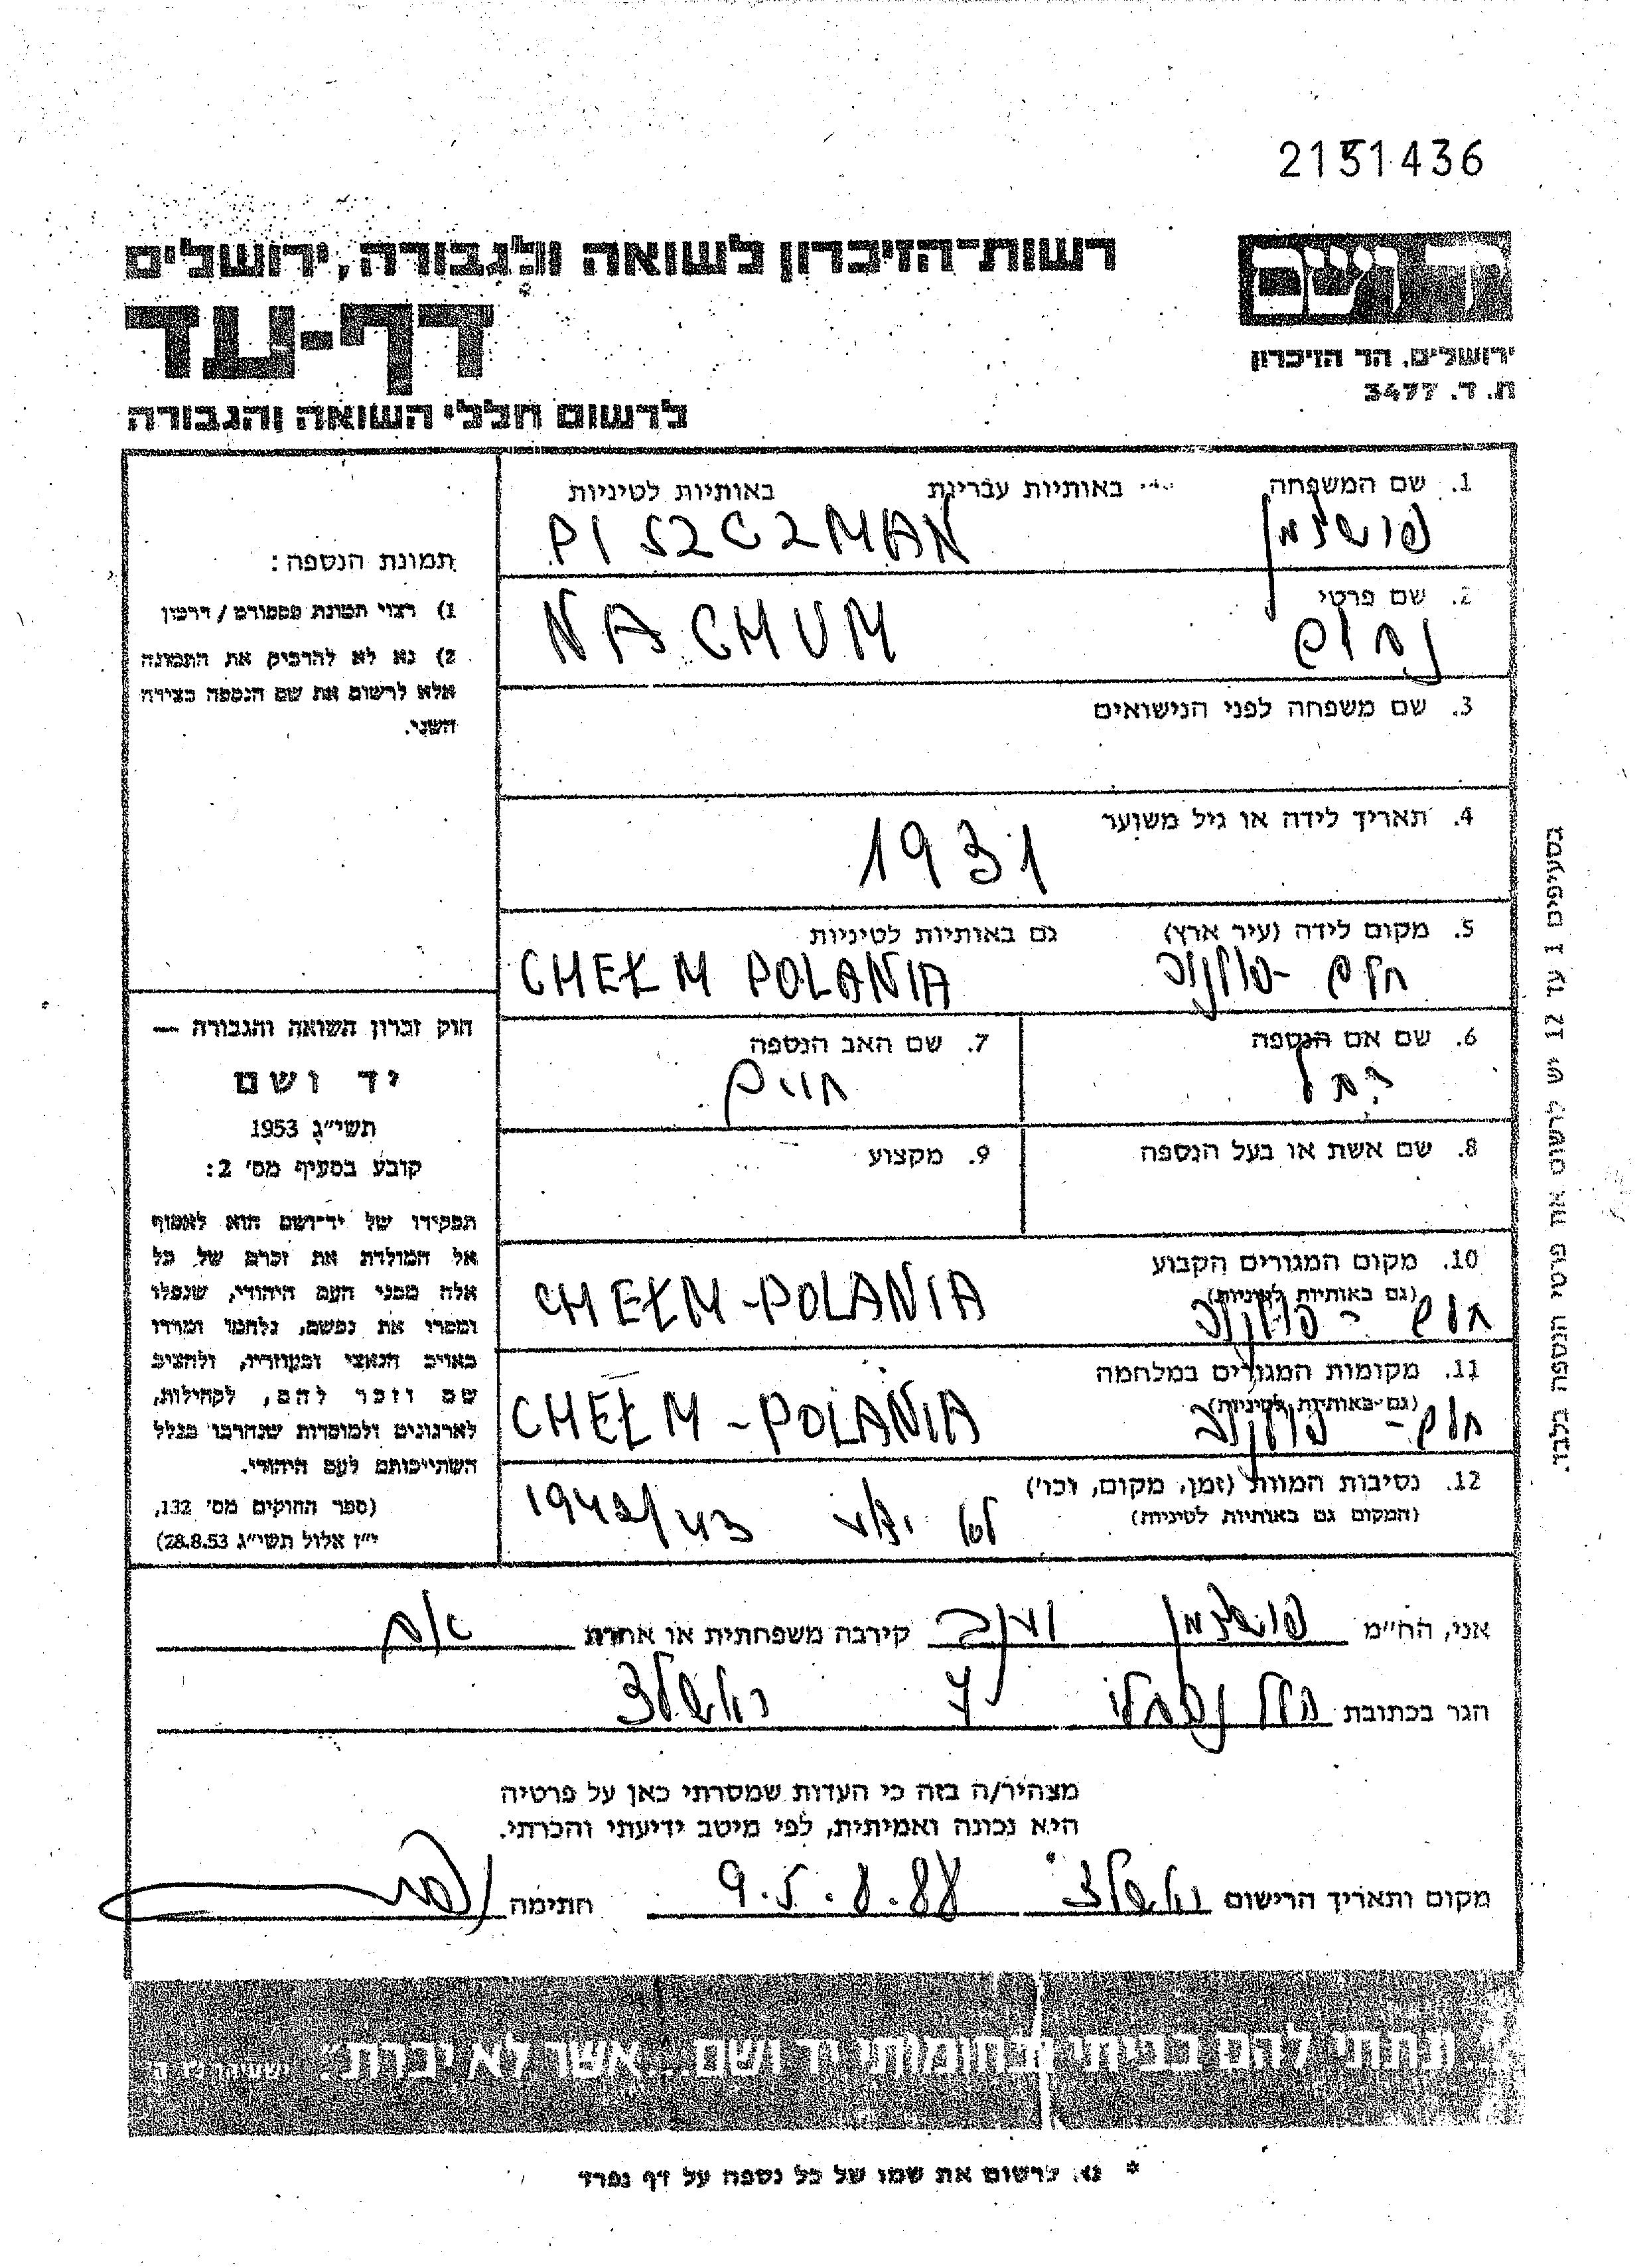 2151436
רשות-הזיכרון לשואה ולגבורה, ירושלים
יד ושם
דף-עד
ירושלים, הר הזיכרון
ת. ד. 3477
לרשום חללי השואה והגבורה
1. שם המשפחה באותיות עבריות באותיות לטיניות
פישצמן PISZCZMAN
2. שם פרטי
נחום NACHUM
3. שם משפחה לפני הנישואים
4. תאריך לידה או גיל משוער
1931
5. מקום לידה (עיר ארץ) גם באותיות לטיניות
חלם - פולניה CHEŁM POLANIA
6. שם אם הנספה
רחל
7. שם האב הנספה
חיים
8. שם אשת או בעל הנספה
9. מקצוע
10. מקום המגורים הקבוע
(גם באותיות לטיניות)
חלם - פולניה CHEŁM-POLANIA
11. מקומות המגורים במלחמה
(גם באותיות לטיניות)
חלם - פולניה CHEŁM-POLANIA
12. נסיבות המוות (זמן, מקום, וכו')
(המקום גם באותיות לטיניות)
לא ידוע 1942/43
תמונת הנספה:
1) רצוי תמונת פספורט / דרכון
2) נא לא להדביק את התמונה
אלא לרשום את שם הנספה בצידה
השני.
חוק זכרון השואה והגבורה —
יד ושם
תשי"ג 1953
קובע בסעיף מס' 2:
תפקידו של יד-ושם הוא לאסוף
אל המולדת את זכרם של כל
אלה מבני העם היהודי, שנפלו
ומסרו את נפשם, נלחמו ומרדו
באויב הנאצי ובעוזריו, ולהציב
שם וזכר להם, לקהילות,
לארגונים ולמוסדות שנחרבו בגלל
השתייכותם לעם היהודי.
(ספר החוקים מס' 132,
י"ז אלול תשי"ג 28.8.53)
בסעיפים 1 עד 12 יש לרשום את פרטי הנספה בלבד.
אני, הח"מ פישצמן קירבה משפחתית או אחרת אח
הגר בכתובת 4
מצהיר/ה בזה כי העדות שמסרתי כאן על פרטיה
היא נכונה ואמיתית, לפי מיטב ידיעתי והכרתי.
מקום ותאריך הרישום חתימה
"...ונתתי להם בביתי ובחומותי יד ושם... אשר לא יכרת" ישעיהו נ"ו ה'
* נא לרשום את שמו של כל נספה על דף נפרד